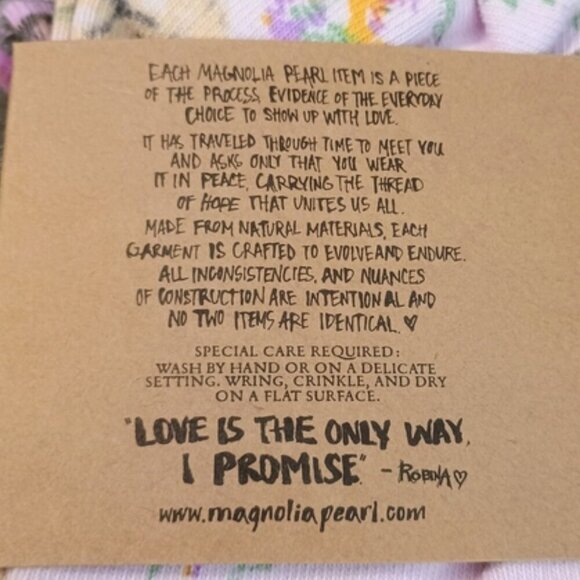 EACH MAGNOLIA PEARL ITEM IS A PIECE
OF THE PROCESS, EVIDENCE OF THE EVERYDAY
CHOICE TO SHOW UP WITH LOVE.
IT HAS TRAVELED THROUGH TIME TO MEET YOU
AND ASKS ONLY THAT YOU WEAR
IT IN PEACE, CARRYING THE THREAD
OF HOPE THAT UNITES US ALL.
MADE FROM NATURAL MATERIALS, EACH
GARMENT IS CRAFTED TO EVOLVE AND ENDURE.
ALL INCONSISTENCIES, AND NUANCES
OF CONSTRUCTION ARE INTENTIONAL AND
NO TWO ITEMS ARE IDENTICAL. ♡
SPECIAL CARE REQUIRED:
WASH BY HAND OR ON A DELICATE
SETTING. WRING, CRINKLE, AND DRY
ON A FLAT SURFACE.
"LOVE IS THE ONLY WAY,
I PROMISE" - ROBINA ♡
www.magnoliapearl.com